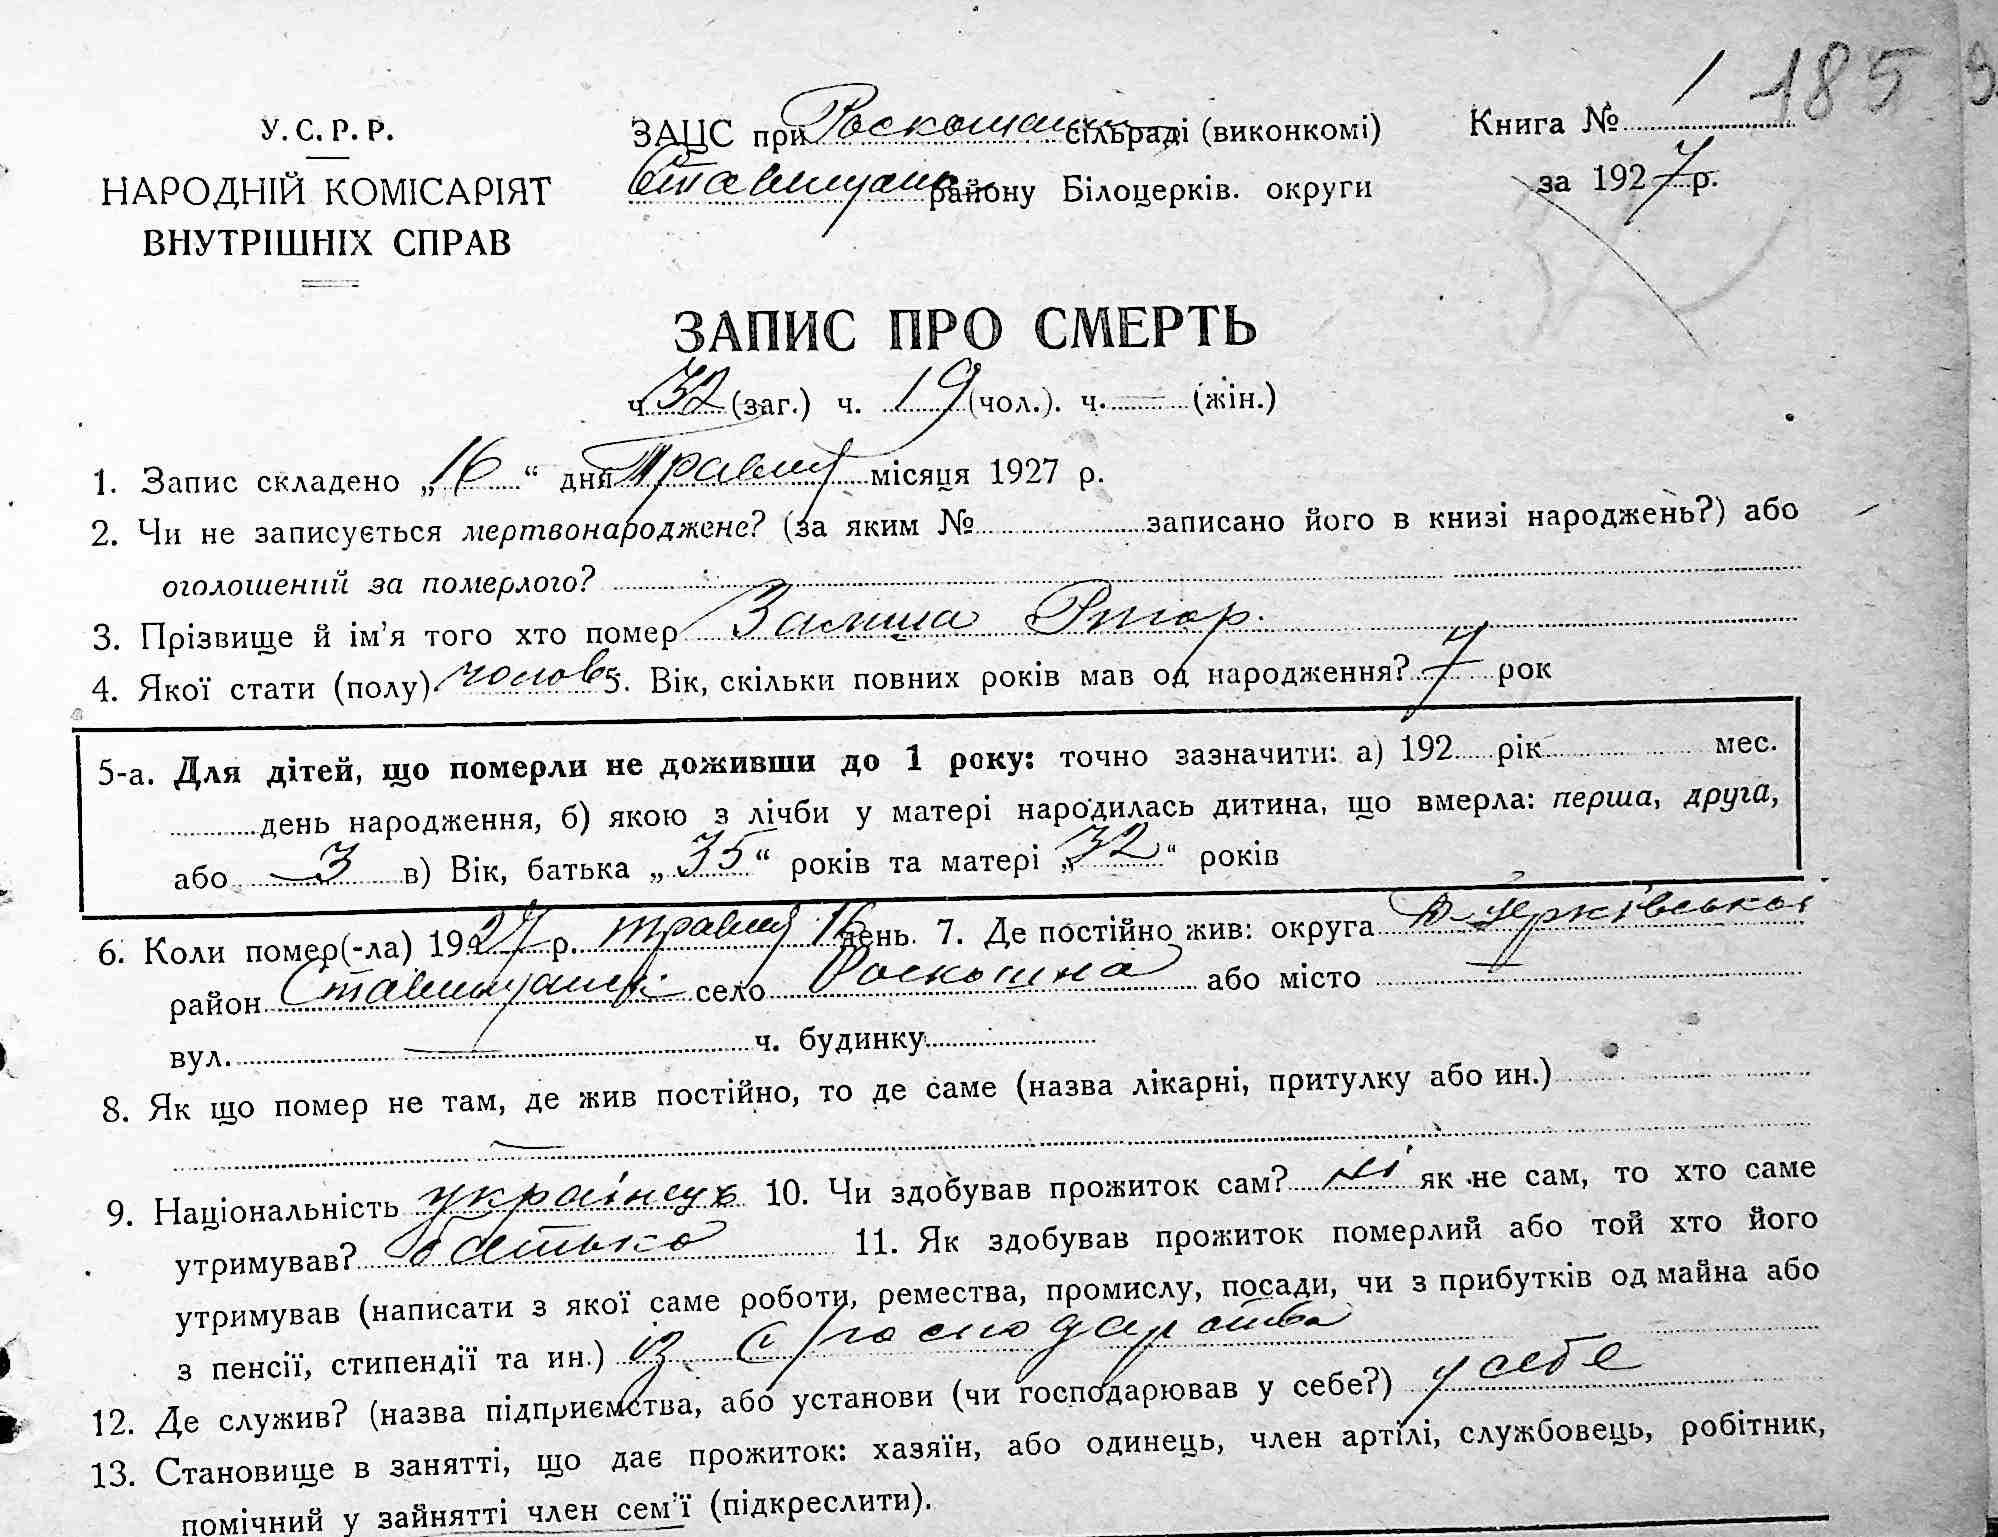 185
У. С. Р. Р.
НАРОДНІЙ КОМІСАРІЯТ
ВНУТРІШНІХ СПРАВ
ЗАЦС при Роскошан сільраді (виконкомі)
Ставищан району Білоцерків. округи
Книга № 1
за 1927 р.
ЗАПИС ПРО СМЕРТЬ
ч. 32 (заг.) ч. 19 (чол.). ч. — (жін.)
1. Запис складено „16“ дня Травня місяця 1927 р.
2. Чи не записується мертвонароджене? (за яким № записано його в книзі народжень?) або
оголошений за померлого?
3. Прізвище й ім’я того хто помер
4. Якої стати (полу) чолов 5. Вік, скільки повних років мав од народження? 7 рок
5-а. Для дітей, що померли не доживши до 1 року: точно зазначити: а) 192 рік мес.
день народження, б) якою з лічби у матері народилась дитина, що вмерла: перша, друга,
або 3 в) Вік, батька „35“ років та матері „32“ років
6. Коли помер(-ла) 1927 р. травня 16 день. 7. Де постійно жив: округа Б-Церківської
район Ставищанськ. село Роскошна або місто
вул. — ч. будинку
8. Як що помер не там, де жив постійно, то де саме (назва лікарні, притулку або ин.)
9. Національність українець 10. Чи здобував прожиток сам? ні як не сам, то хто саме
утримував? батько 11. Як здобував прожиток померлий або той хто його
утримував (написати з якої саме роботи, ремества, промислу, посади, чи з прибутків од майна або
з пенсії, стипендії та ин.) із господарства
12. Де служив? (назва підприємства, або установи (чи господарював у себе?) у себе
13. Становище в занятті, що дає прожиток: хазяїн, або одинець, член артілі, службовець, робітник,
помічний у зайнятті член сем’ї (підкреслити).